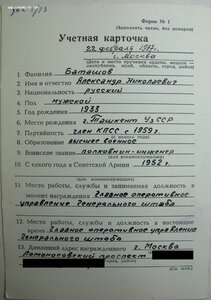 Форма № 1
(Заполнять чётко, без помарок)
Учетная карточка
22 февраля 1977 г.
г. Москва
(Дата и место вручения ордена, медали —
республика, край, область, город, район)
1 Фамилия Баташов
2 Имя и отчество Александр Николаевич
3 Национальность русский
4 Пол мужской
5 Год рождения 1933
6 Место рождения г. Ташкент УзССР
7 Партийность член КПСС с 1959 г.
8 Образование высшее военное
9 Воинское звание полковник-инженер
10 С какого года в Советской Армии 1952 г.
11 Место работы, службы и занимаемая должность к
моменту награждения Главное оперативное
управление Генерального штаба
12 Место работы, службы и должность в настоящее
время Главное оперативное управление
Генерального штаба
13 Домашний адрес награжденного г. Москва
Ломоносовский проспект
(См. на об.)